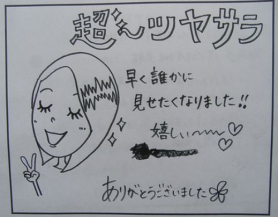 超〜ツヤサラ
早く誰かに
見せたくなりました!!
嬉しぃ〜〜♡
ありがとうございました